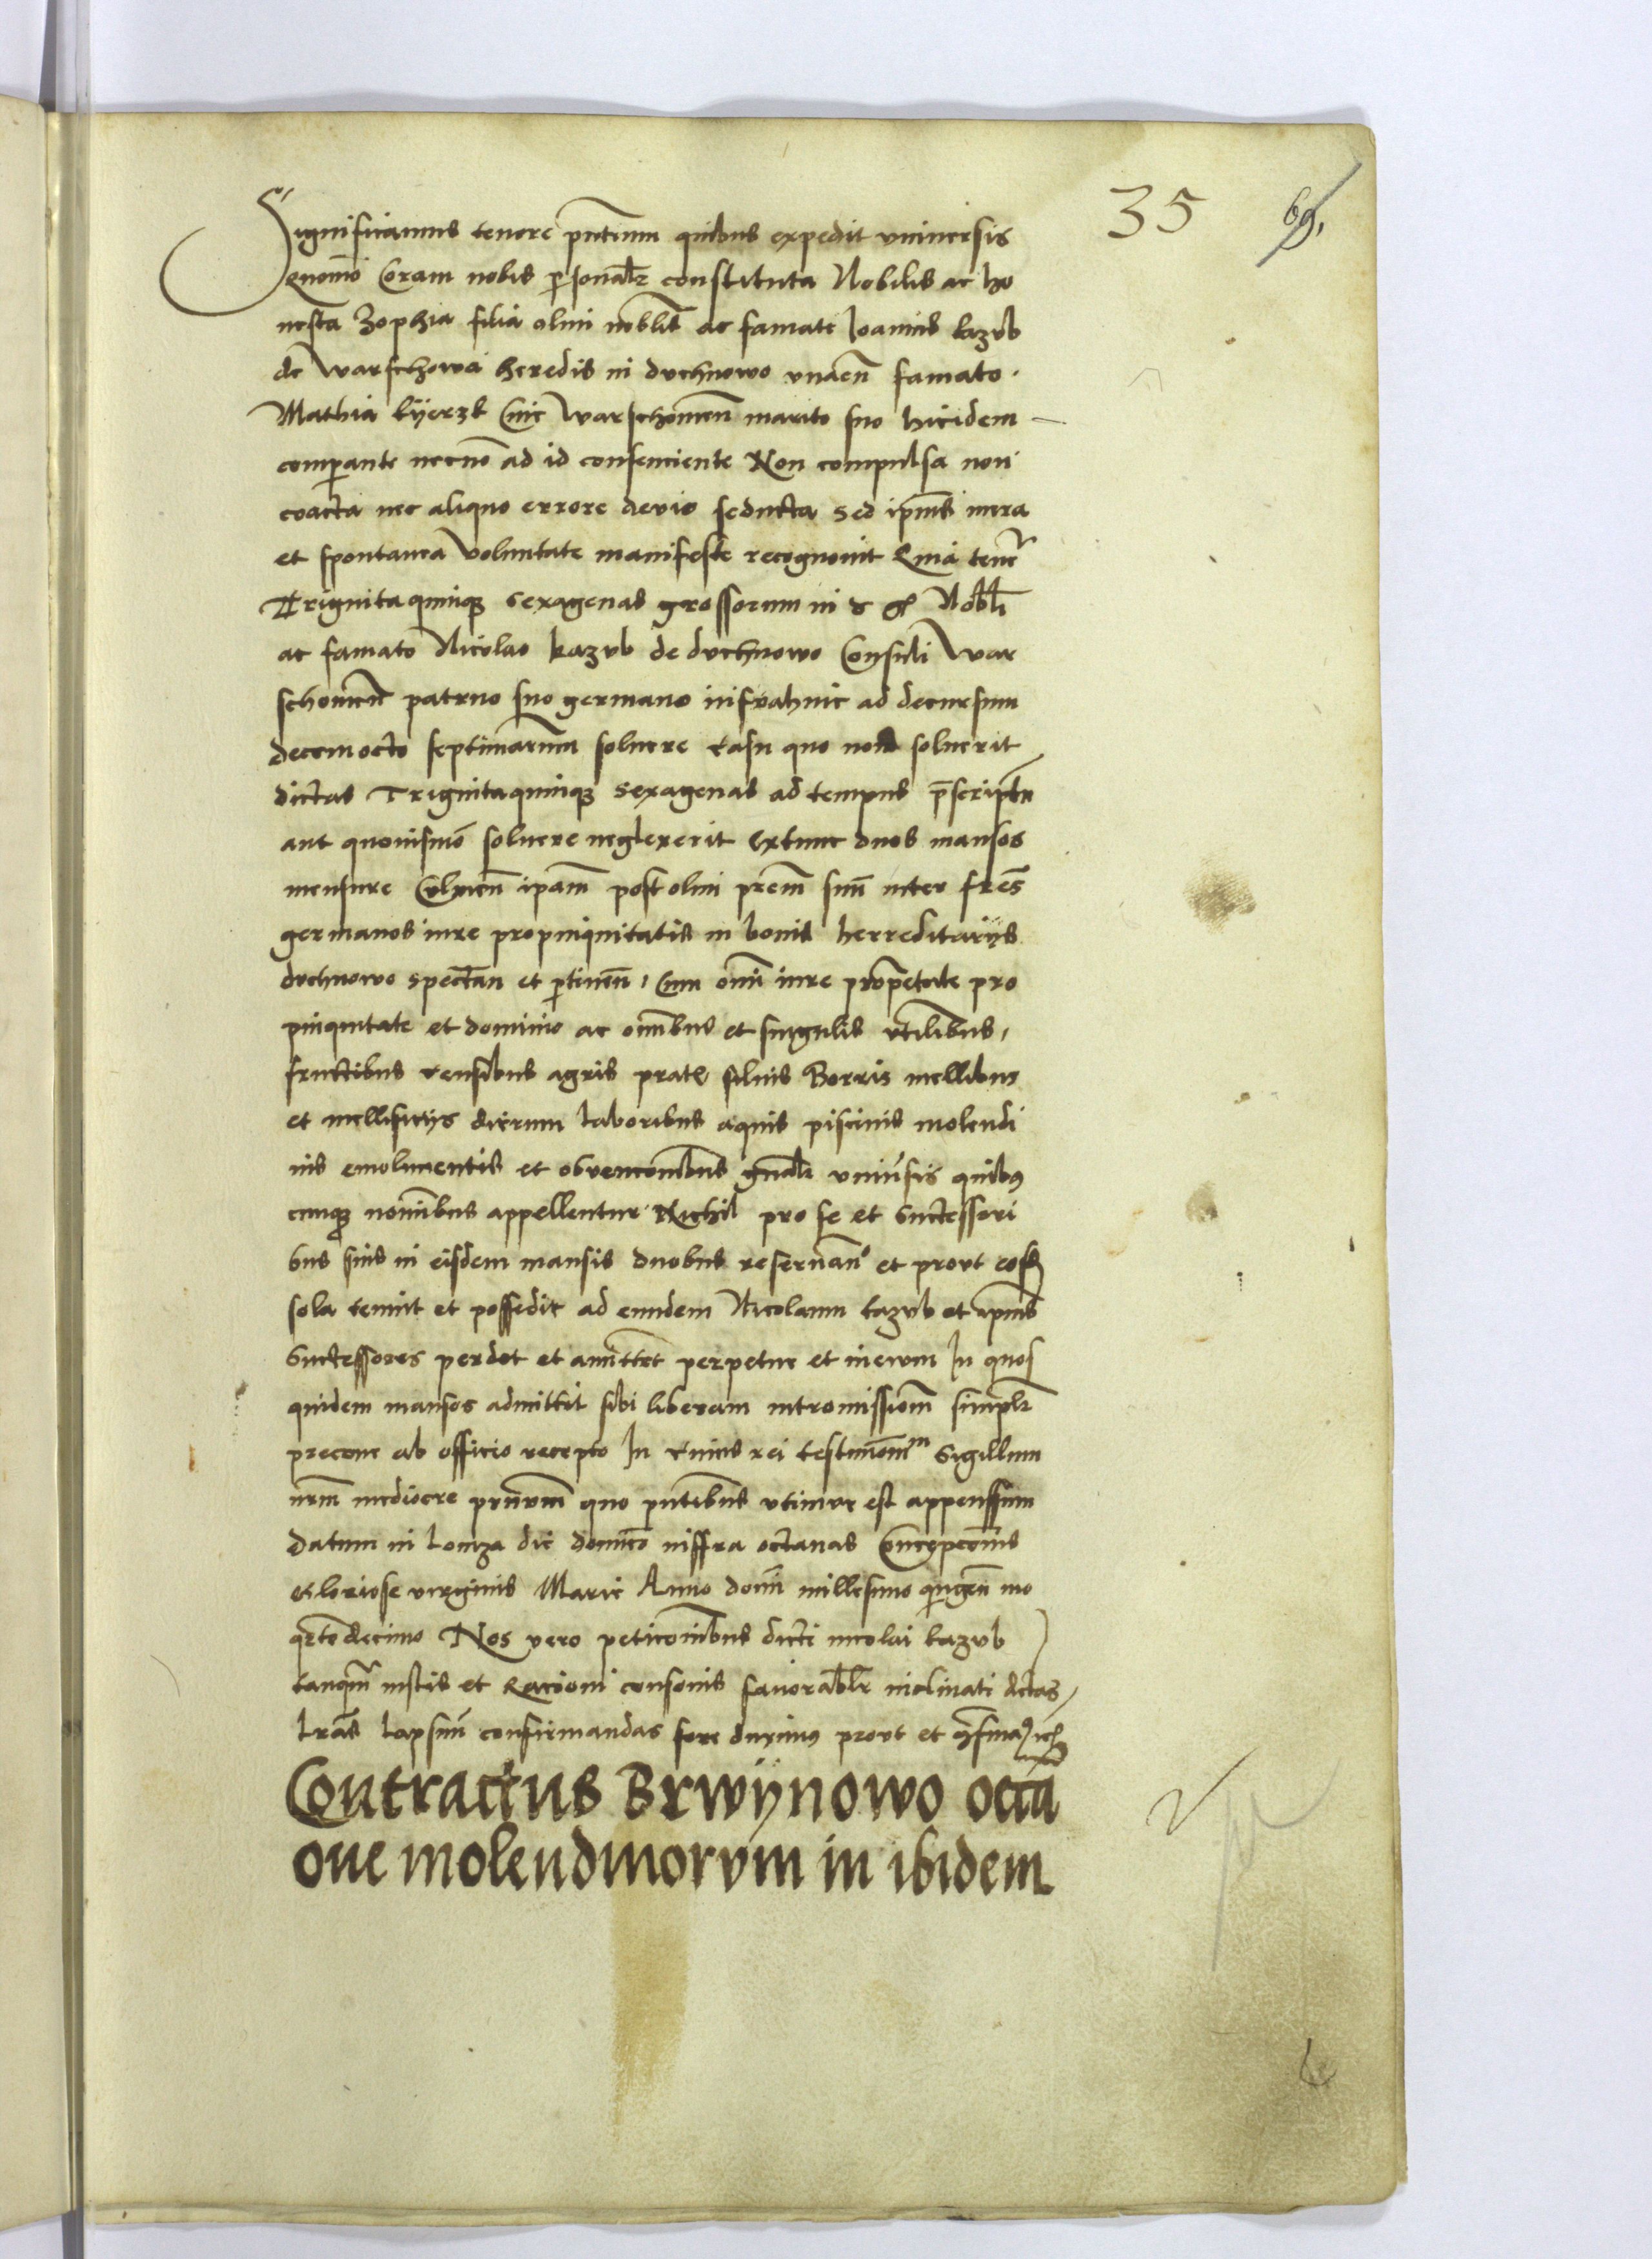 35 69.
Significamus tenore pntium quibus expedit vniuersis
quomo Coram nobis psonalr constituta Nobilis ac ho
nesta Zophia filia olim noblis ac famati Joannis kazvb
de Warschowa heredis in dvchnowo vnacu famato
Mathia kyerzk Ciue Warschouien marito suo hicidem
compante necno ad id consenciente Non compulsa non
coacta nec aliquo errore deuio seducta Sed ipius mera
et spontanea voluntate manifeste recognouit Quia tenet
Triginta quinque sexagenas grossorum in Nobli
ac famato Nicolao kazvb de dvchnowo Consuli War
schouien patruo suo germano infrahinc ad decursum
decemocto septimanarum soluere casu quo non soluerit
dictas Trigintaquinque sexagenas ad tempus prescriptu
aut quouismo soluere neglexerit Extunc duos mansos
mensure Culmen ipam post olim prem suu inter fres
germanos iure propinquitatis in bonis herreditarijs
dvchnowo spectan et ptinen Cum omi iure proprietate pro
pinquitate et dominio ac omibus et singulis vtilibus
fructibus censibus agris prat siluis Borris mellibus
et mellificijs dierum laboribus aquis piscinis molendi
nis emolumentis et obuencionibus gnali vniuersis quibus
cunque nominibus appellentur Nichil pro se et Successori
bus suis in eisdem mansis duobus reseruan et provt eosdem
sola tenuit et possedit ad eundem Nicolaum kazvb et ipius
Successores perdet et amittet perpetue et in ewm In quos
quidem mansos admittit sibi liberam intromissionem simplr
precone ab officio recepto In Cuius rei testimonium Sigillum
nrm mediocre quo pntibus vtimur est appenssum
Datum in Lomza die dominico inffra octauas Concepcionis
Gloriose virginis Marie Anno domi millesimo quingen mo
qrtodecimo Nos vero peticionibus dicti nicolai kazvb
tanqm iustis et Racioni consonis fauorablr inclinati dctas
lras lapsum confirmandas fore duximus provt et
Contractus Brwijnowo octa
oue molendinorvm in ibidem